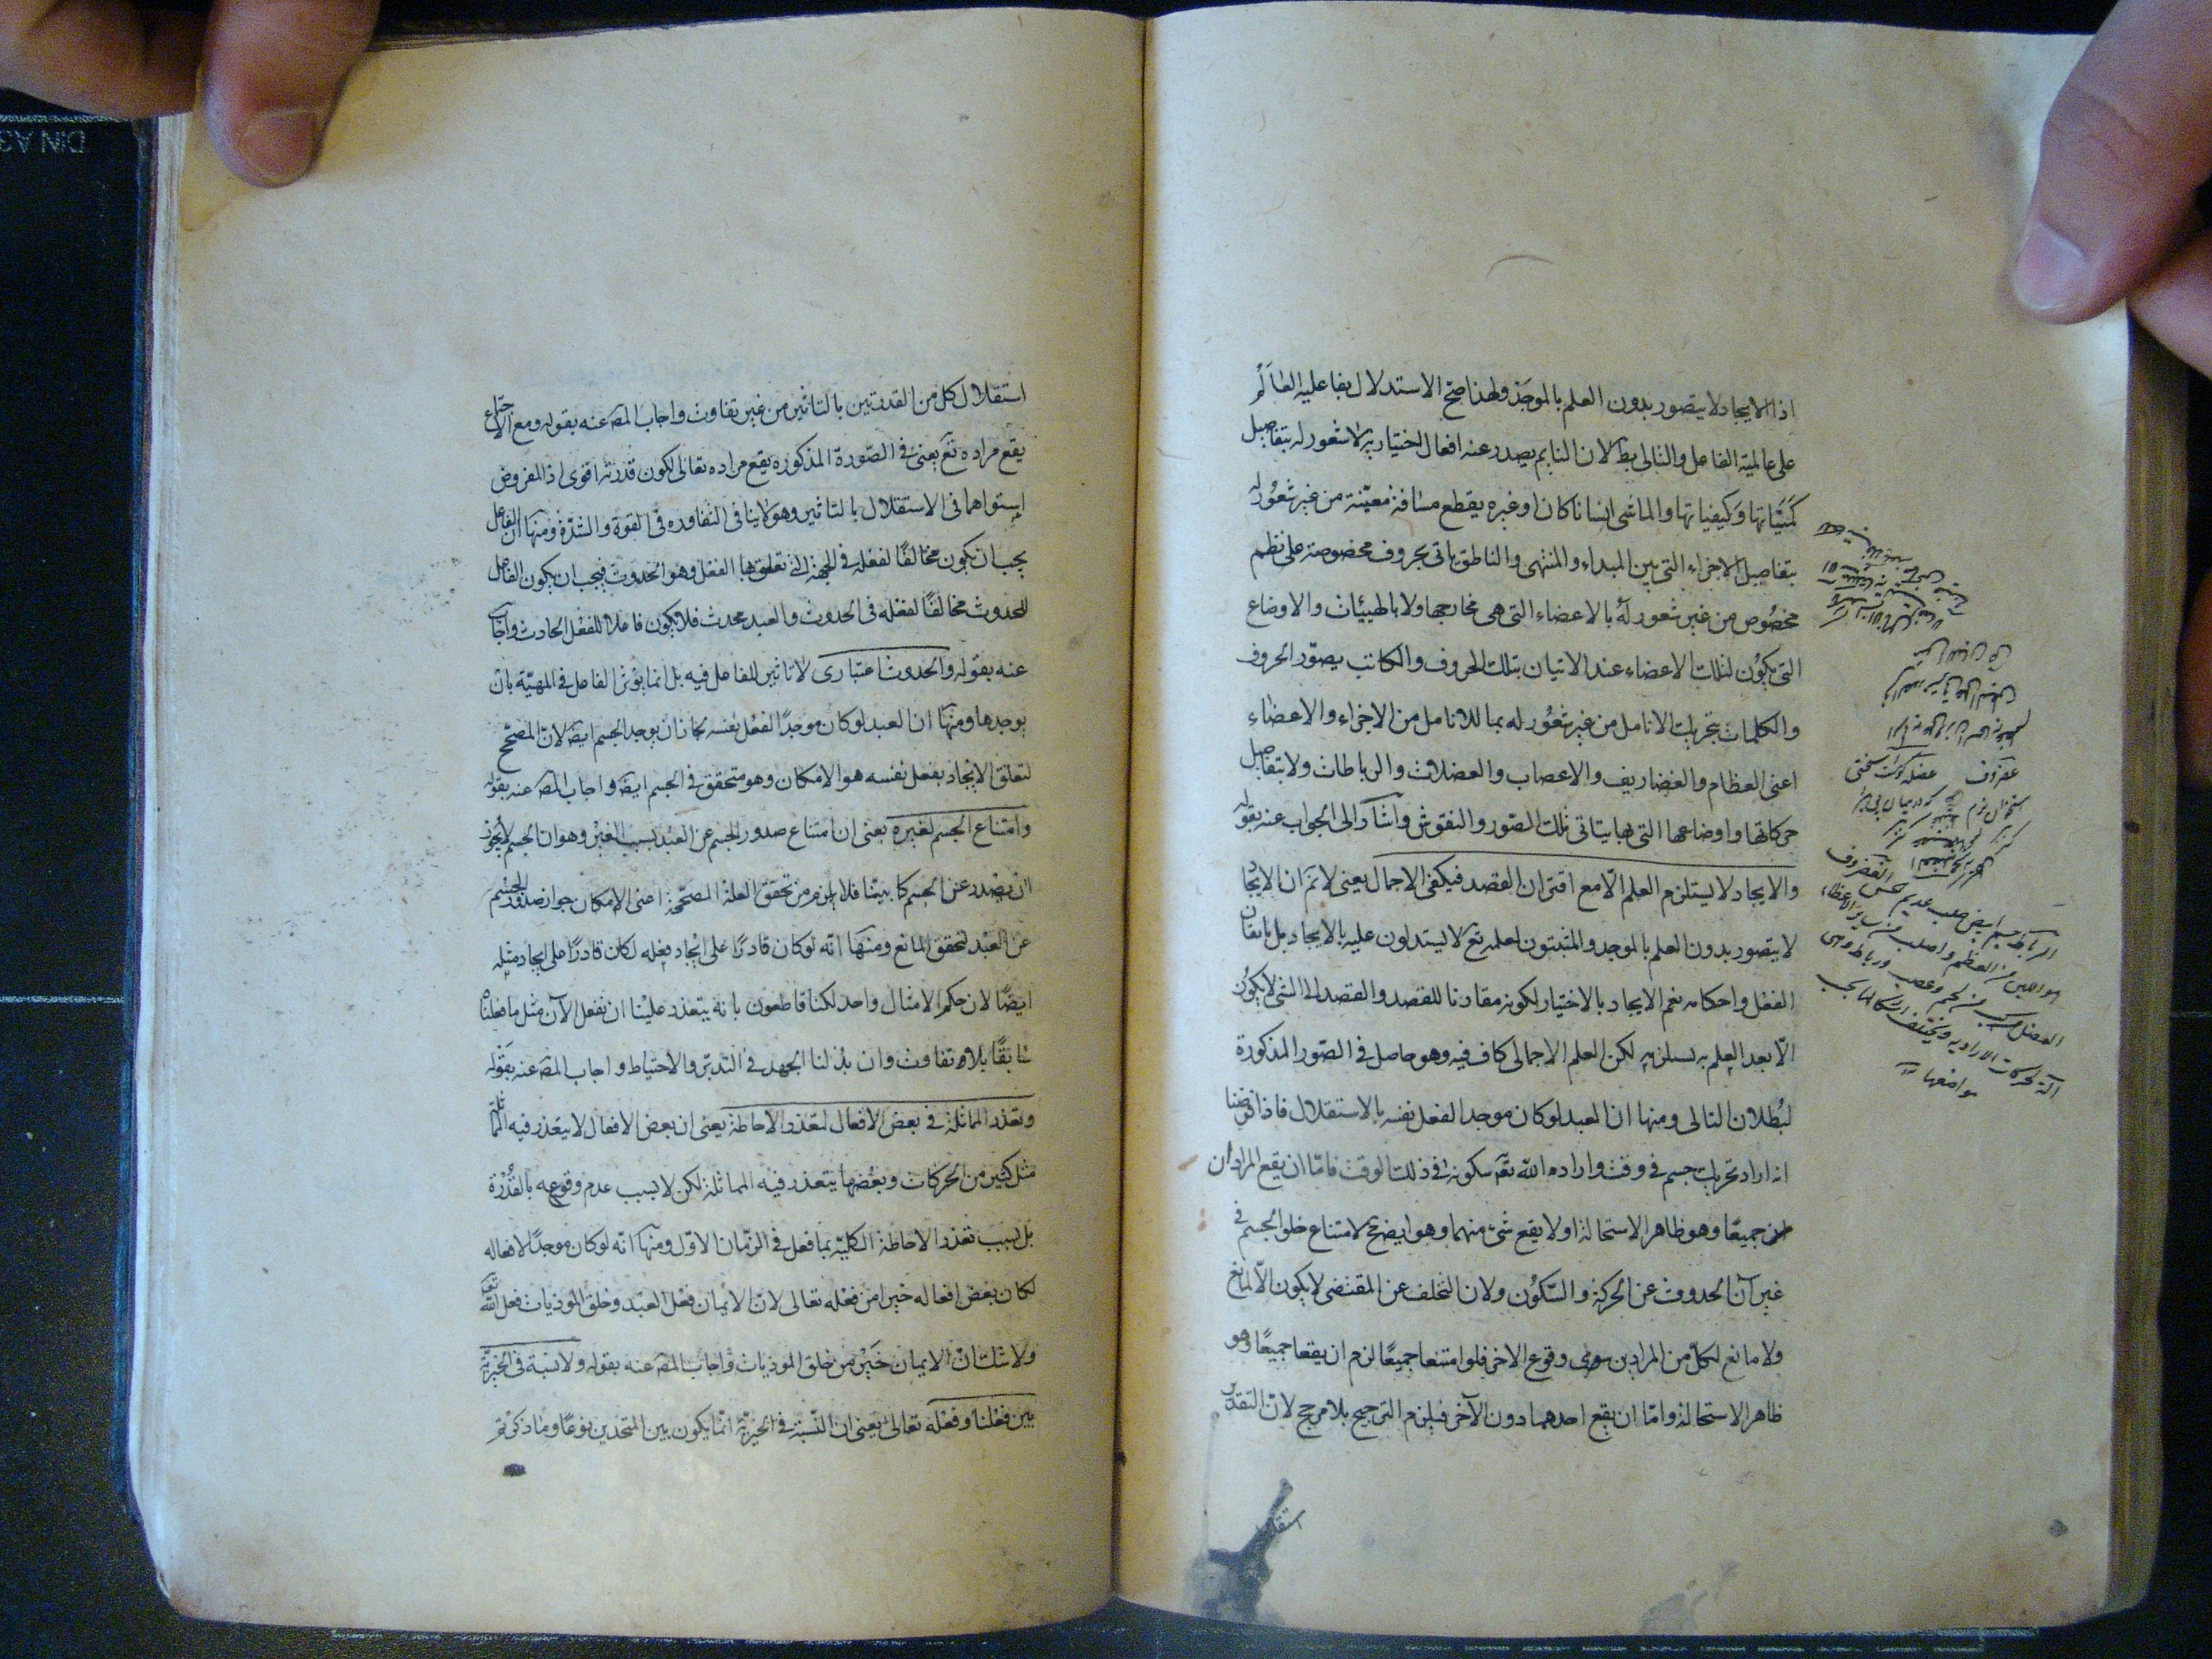 اذ الايجاد لا يتصور بدون العلم بالموجَد ولهذا صح الاستدلال بفاعلية العالم
على عالمية الفاعل والتالى بط لان النايم يصدر عنه افعال اختيارية لا شعور له بتفاصيل
كميّاتها وكيفياتها والماشى انسانا كان او غيره يقطع مسافة معيّنة من غير شعور له
بتفاصيل الاجزاء التى بين المبداء والمنتهى والناطق ياتى بحروف مخصوصة على نظم
مخصوص من غير شعور له بالاعضاء التى هى مخارجها ولا بالهيئات والاوضاع
التى يكون لتلك الاعضاء عند الاتيان بتلك الحروف والكاتب يصوّر الحروف
والكلمات بتحريك الانامل من غير شعور له بما للانامل من الاجزاء والاعضاء
اعنى العظام والغضاريف والاعصاب والعضلات والرباطات ولا بتفاصيل
حركاتها واوضاعها التى بها يتاتى تلك الصور والنقوش واشار الى الجواب عنه بقوله
والايجاد لا يستلزم العلم الّا مع اقتران القصد فيكفى الاجمال يعنى لا نم ان الايجاد
لا يتصور بدون العلم بالموجد والمثبتون لعلمه تع لا يستدلون عليه بالايجاد بل باتقان
الفعل واحكامه نعم الايجاد بالاختيار لكونه مقارنا للقصد والقصد الى الشى لا يكون
الّا بعد العلم به يستلزمه لكن العلم الاجمالى كاف فيه وهو حاصل فى الصور المذكورة
لبطلان التالى ومنها ان العبد لو كان موجد الفعل نفسه بالاستقلال فاذا فرضنا
انه اراد تحريك جسم فى وقت واراد الله تع سكونه فى ذلك الوقت فامّا ان يقع المرادان
جميعًا وهو ظاهر الاستحالة او لا يقع شئ منهما وهو ايضح لامتناع خلو الجسم فى
غير آن الحدوث عن الحركة والسكون ولان التخلف عن المقتضى لا يكون الّا لمانع
ولا مانع لكلّ من المرادين سوى وقوع الاخر فلو امتنعا جميعًا لزم ان يقعا جميعًا وهو
ظاهر الاستحالة وامّا ان يقع احدهما دون الآخر فيلزم الترجيح بلا مرجح لانّ التقدير
استقلال
غضروف
الرباط جسم ابيض صلب عديم الحس الغضروف
الين من العظم واصلب من ساير الاعضاء
العضل مركب من لحم وعصب ورباط وهى
آلة لحركات الارادية ويختلف اشكالها بحسب
مواضعها
استقلال كل من القدرتين بالتاثير من غير تفاوت واجاب المصـ عنه بقوله ومع الاجتماع
يقع مراده تع يعنى فى الصّورة المذكورة يقع مراده تعالى لكون قدرته اقوى اذ المفروض
استواهما فى الاستقلال بالتاثير وهو لا ينافى التفاوه فى القوة والشدّة ومنها ان الفاعل
يجب ان يكون مخالفًا لفعله فى الجهة التى تعلق بها الفعل وهو الحدوث فيجب ان يكون الفاعل
للحدوث مخالفًا لفعله فى الحدوث والعبد محدث فلا يكون فاعلا للفعل الحادث واجاب
عنه بقوله والحدوث اعتبارى لا تاثير للفاعل فيه بل انما يؤثر الفاعل فى المهيّة بان
يوجدها ومنها ان العبد لو كان موجدًا لفعل نفسه لجاز ان يوجد الجسم ايضا لان المصحّح
لتعلق الايجاد بفعل نفسه هو الامكان وهو متحقق فى الجسم ايضا واجاب المصـ عنه بقوله
وامتناع الجسم لغيره يعنى ان امتناع صدور الجسم عن العبد بسبب الغير وهو ان الجسم لا يجوز
ان يصدر عن الجسم كما بيّنا فلا يلزم من تحقق العلة المصحّحة اعنى الامكان جواز صدور الجسم
عن العبد لتحقق المانع ومنها انّه لو كان قادرًا على ايجاد فعله لكان قادرًا على ايجاد مثله
ايضًا لان حكم الامثال واحد لكنا قاطعون بانه يتعذر علينا ان نفعل الآن مثل ما فعلناه
سابقًا بلا تفاوت وان بذلنا الجهد فى التدبّر والاحتياط واجاب المصـ عنه بقوله
وتعذر المماثلة فى بعض الافعال لتعذر الاحاطة يعنى ان بعض الافعال لا يتعذر فيه المماثلة
مثل كثير من الحركات وبعضها يتعذر فيه المماثلة لكن لا بسبب عدم وقوعه بالقدرة
بل بسبب تعذر الاحاطة الكلية بما فعل فى الزمان الاوّل ومنها انّه لو كان موجدًا لافعاله
لكان بعض افعاله خيرا من فعله تعالى لانّ الايمان فعل العبد وخلق الموذيات فعل الله تع
ولا شك انّ الايمان خير من خلق الموذيات واجاب المصـ عنه بقوله ولا نسبة فى الخيرية
بين فعلنا وفعله تعالى يعنى ان النسبة فى الخيرية انّما يكون بين المتحدين نوعًا وما ذكرتم
DIN A3